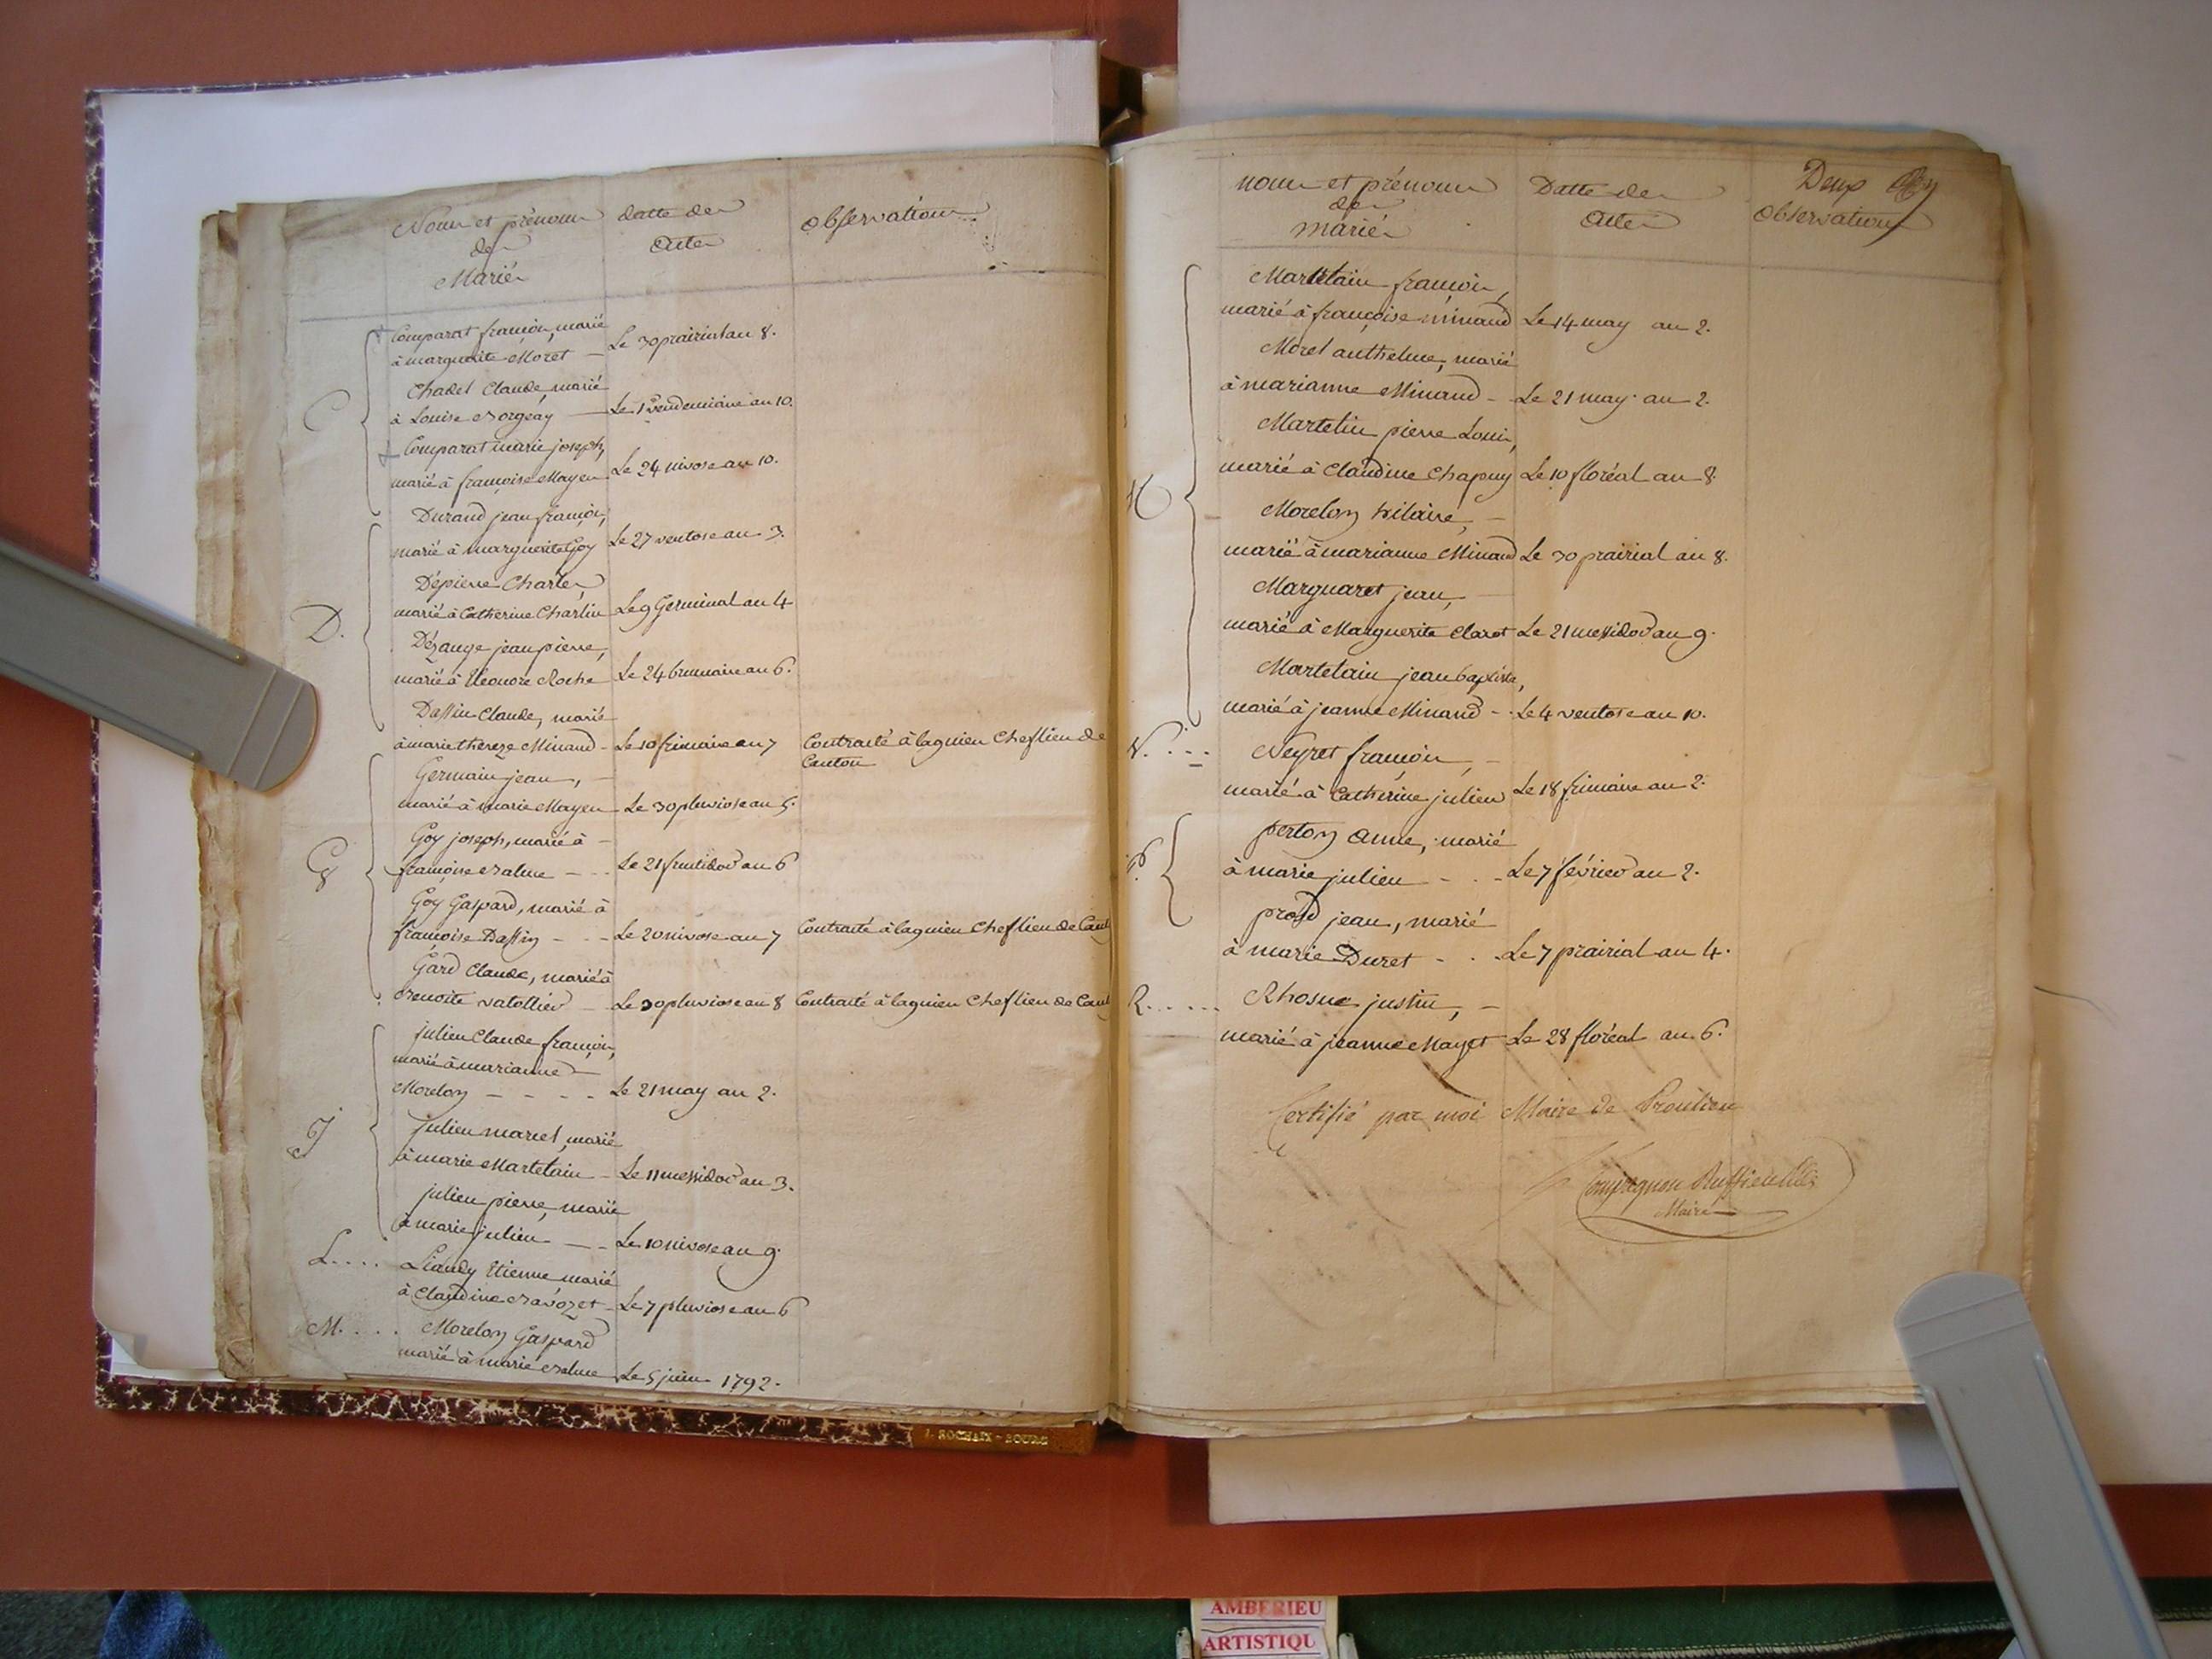 Noms et prénoms
des
Mariés
datte des
Actes
Observations
C
Comparat françois, marié
à marguerite Moret —
Le 30 prairial an 8.
Chadel Claude, marié
à Louise Borgeay —
Le 1er vendemiaire an 10.
Comparat marie joseph,
marié à françoise Mayen
Le 24 nivose an 10.
D.
Durand jean françois,
marié à marguerite Goy
Le 27 ventose an 3.
Dépierre Charles,
marié à Catherine Charlin
Le 9 Germinal an 4
Dézange jean pierre,
marié à Eléonore Roche
Le 24 brumaire an 6.
Dassin Claude, marié
à marie thereze Minand -
Le 10 frimaire an 7
Contracté à lagnieu Cheflieu de
Canton
G
Germain jean, —
marié à marie Mayen
Le 30 pluviose an 5.
Goy joseph, marié à -
françoise Balme - - -
Le 21 fructidor an 6
Goy Gaspard, marié à
françoise Dassin - - -
Le 20 nivose an 7
Contracté à lagnieu Cheflieu de Cant
Gard Claude, marié à
Benoite vatollier -
Le 30 pluviose an 8
Contracté à lagnieu Cheflieu de Cant
J
julien Claude françois,
marié à marianne —
Morelon - - - -
Le 21 may an 2.
julien marcel, marié
à marie Martelain -
Le 11 messidor an 3.
julien pierre, marié
à marie julien — -
Le 10 nivose an 9.
L....
Liaudy Etienne marié
à Claudine Bavozet -
Le 7 pluviose an 6
M....
Morelon Gaspard
marié à marie Balme
Le 5 juin 1792.
noms et prénoms
des
mariés
Datte des
Actes
Deux
Observations
M
Martelain françois,
marié à françoise minand
Le 14 may an 2.
Morel anthelme, marié
à marianne Minand -
Le 21 may an 2.
Martelin pierre Louis,
marié à Claudine Chapuy
Le 10 floréal an 8.
Morelon hilaire, -
marié à marianne Minand
Le 30 prairial an 8.
Marguaret jean, -
marié à Marguerite Claret
Le 21 messidor an 9.
Martelain jean baptiste,
marié à jeanne Minand -
Le 4 ventose an 10.
N....
Neyret françois, -
marié à Catherine julien
Le 18 frimaire an 2.
P.
perton anne, marié
à marie julien - . -
Le 7 février an 2.
prost jean, marié
à marie Duret - . -
Le 7 prairial an 4.
R.....
Rhosne justin, -
marié à jeanne Mayet
Le 28 floréal an 6.
Certifié par moi Maire de Proulieu
Compagnon
Maire
J. ROCHAIX - BOURG
AMBERIEU
ARTISTIQU